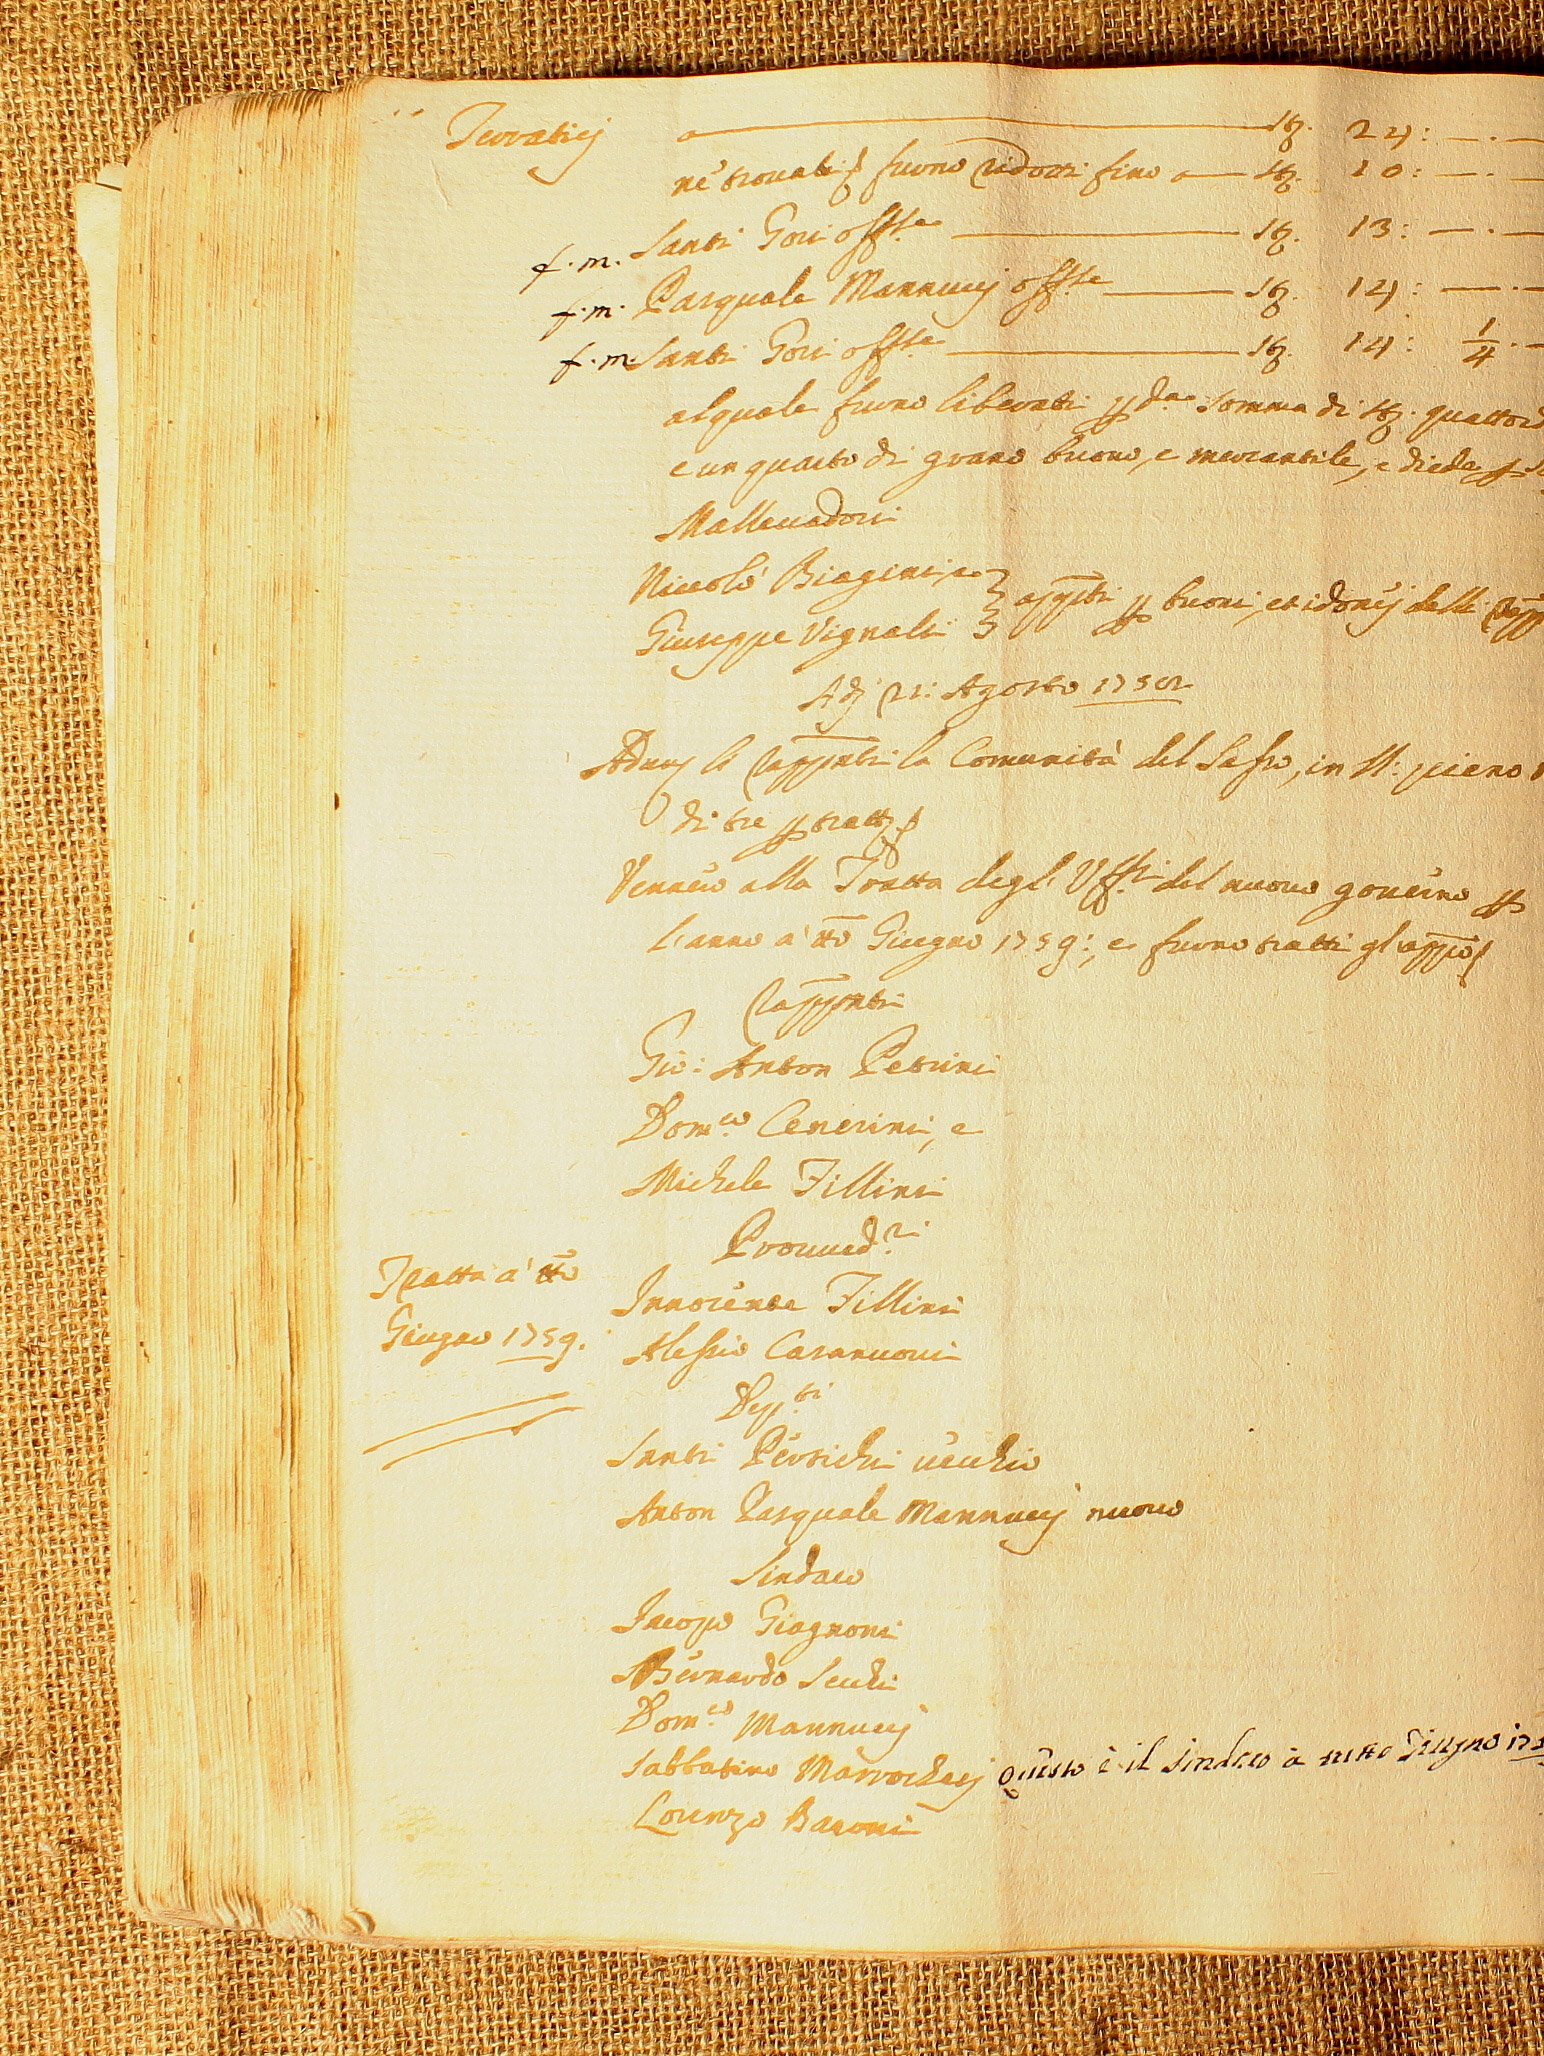 Terratici a ——— St.a 24: —.—
nè trovati s furno ridotti fino a — St.a 10: —.—
f.m. Santi Gori offse ——— St.a 13: —.—
f.m. Pasquale Mannucj offse ——— St.a 14: —.—
f.m. Santi Gori offse ——— St.a 14: 1/4.—
al quale furno liberati p da somma di St.a quattord
e un quarto di grano buono, e mercantile, e diede p
Mallevadori
Niccolò Biagini, e
Giuseppe Vignali } appti p buoni, et idonej delli
Adj 21: Agosto 1758
Adunj li rappnti la Comunità del Sasso, in N: pieno
di tre p tratt
Vennero alla Tratta degl' Uffi del nuovo governo p
l'anno a' tto Giugno 1759:, e furno tratti gl' appo
Rappnti
Gio: Anton Petrini
Domco Cenerini, e
Michele Fillini
Provvedri
Tratta a' tto
Giugno 1759.
Innocente Fillini
Alessio Casanuovi
Depti
Santi Pertichi vecchio
Anton Pasquale Mannucj nuovo
Sindaco
Jacopo Giagnoni
Bernardo Secchi
Domco Mannucj
Sabbatino Marrochesj questo è il sindaco à tutto Giugno 175
Lorenzo Baroni